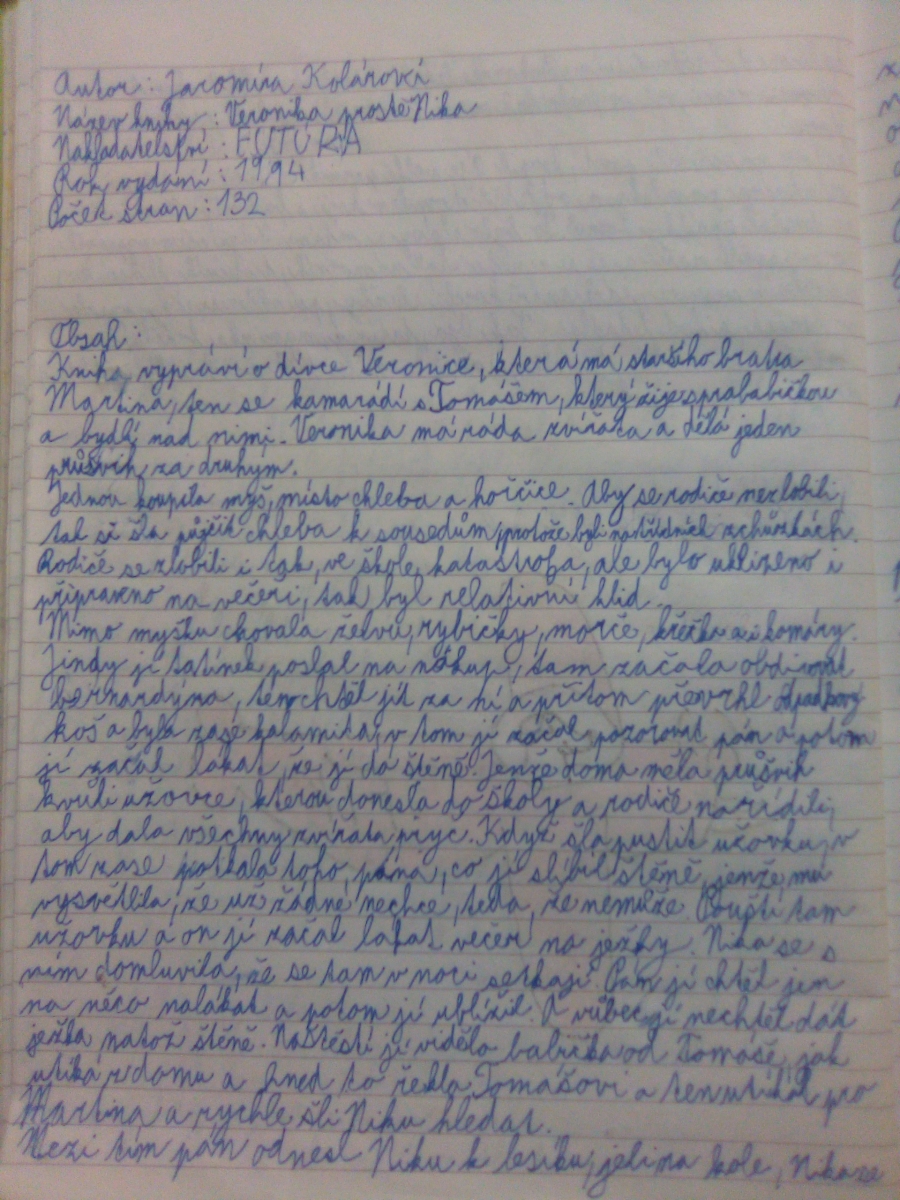 Autor : Jaromíra Kolárová
Název knihy : Veronika prostě Nika
Nakladatelství : FUTURA
Rok vydání : 1994
Poček stran : 132
Obsah :
Kniha vypráví o dívce Veronice, která má staršího bratra
Martina, ten se kamarádí s Tomášem, který žije s prababičkou
a bydlí nad nimi. Veronika má ráda zvířata a dělá jeden
průšvih za druhým.
Jednou koupila myš, místo chleba a hořčice. Aby se rodiče nezlobili,
tak si šla půjčit chleba k sousedům, protože byli na třídních schůzkách.
Rodiče se zlobili i tak, ve škole katastrofa, ale bylo uklizeno i
připraveno na večeři, tak byl relativní klid.
Mimo myšku chovala želvu, rybičky, morče, křečka a i komáry.
Jindy jí tatínek poslal na nákup, tam začala obdivovat
bernardýna, ten chtěl jít za ní a přitom převrhl odpadkový
koš a byla zase kalamita, v tom jí začal pozorovat pán a potom
jí začal lákat, že jí dá štěně. Jenže doma měla průšvih
kvůli užovce, kterou donesla do školy a rodiče nařídili,
aby dala všechny zvířata pryč. Když šla pustit užovku, v
tom zase potkala toho pána, co jí slíbil štěně, jenže mu
vysvětlila, že už žádné nechce, teda, že nemůže. Pouští tam
užovku a on jí začal lákat večer na ježky. Nika se s
ním domluvila, že se tam v noci setkají. Pán jí chtěl jen
na něco nalákat a potom jí ublížil. A vůbec jí nechtěl dát
ježka natož štěně. Naštěstí jí vidělo babička od Tomáše, jak
utíká z domu a hned to řekla Tomášovi a ten utíkal pro
Martina a rychle šli Niku hledat.
Mezi tím pán odnesl Niku k lesíku, jeli na kole, Nika ze